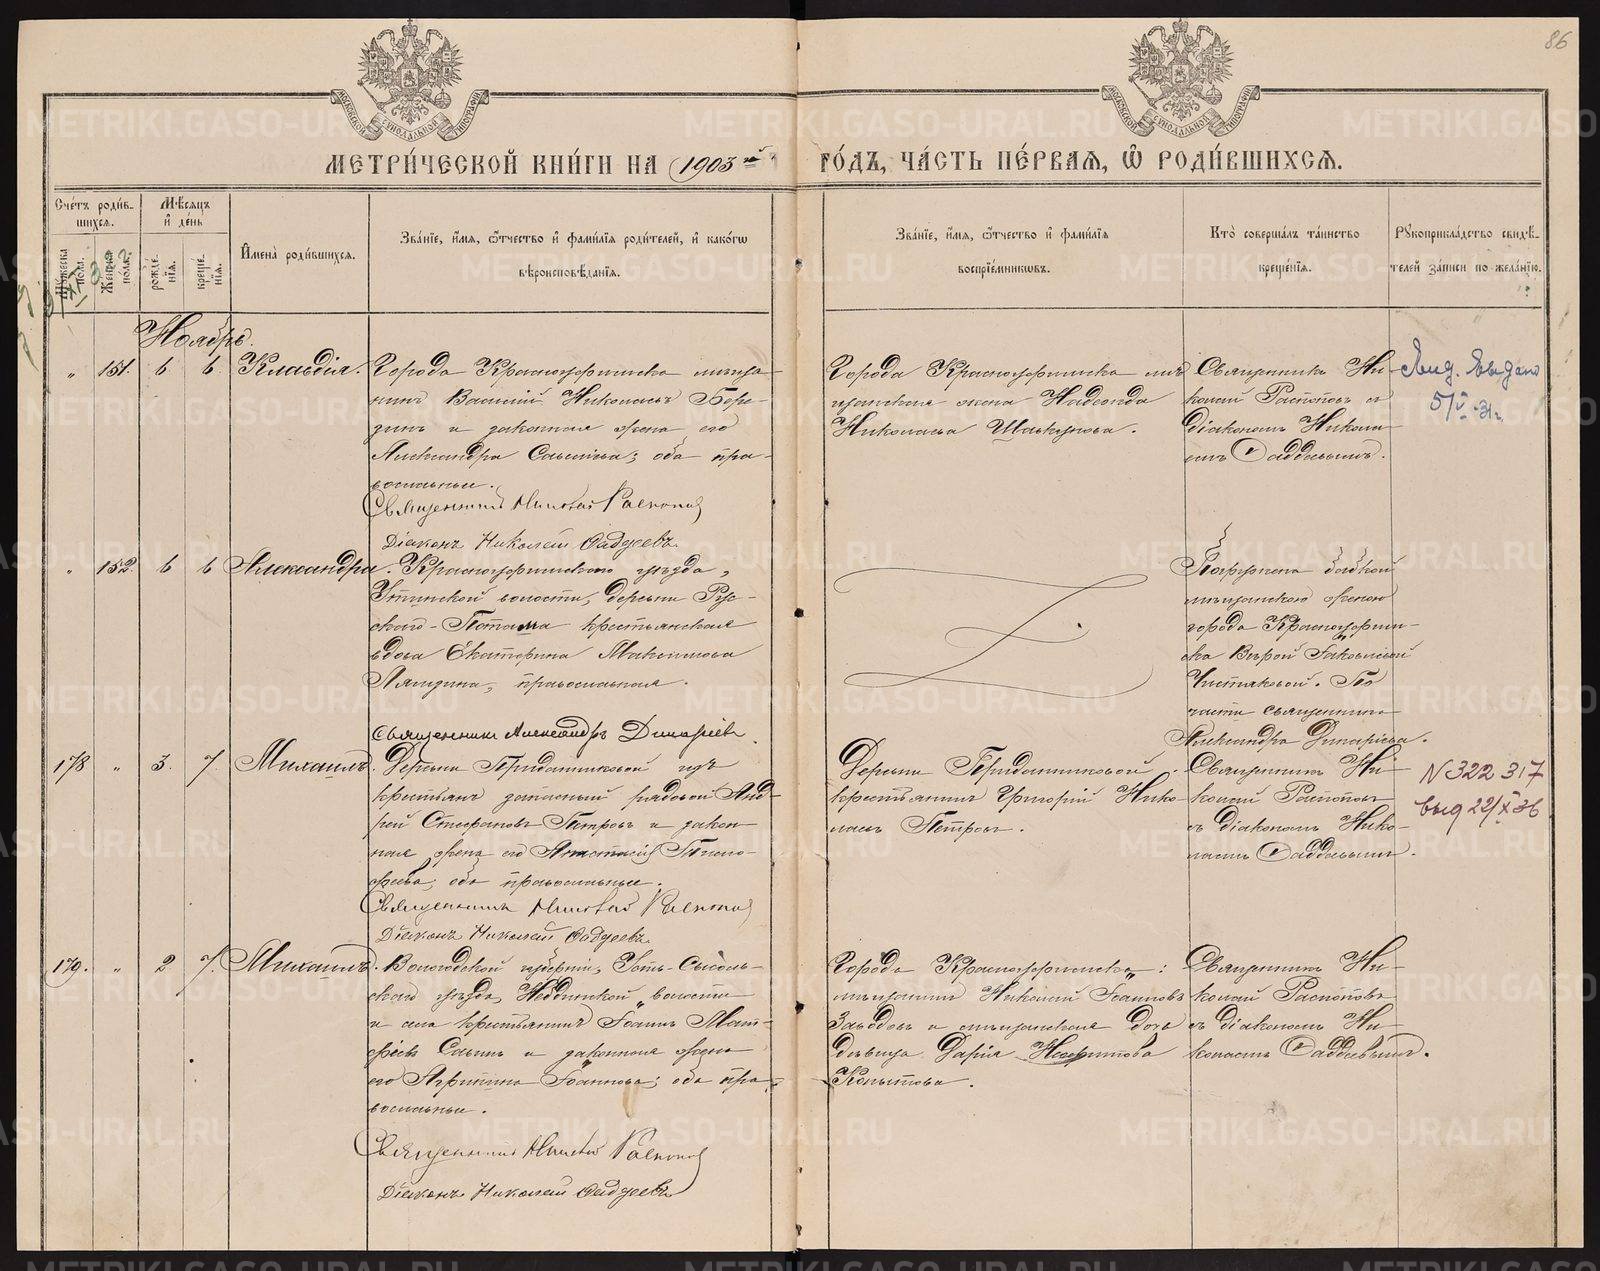 86
МЕТРИ́ЧЕСКОЙ КНИ́ГИ НА 1903 й ГО́ДЪ, ЧА́СТЬ ПЕ́РВАЯ, Ѡ҆ РОДИ́ВШИХСѦ.
Сче́тъ роди́в-
шихсѧ.
Мѣ́сѧцъ
и҆ де́нь
Мꙋ́жеска
пола.
Же́нска
пола.
рожде́-
нїѧ.
креще́-
нїѧ.
И҆мена̀ роди́вшихсѧ.
Зва́нїе, и҆́мѧ, ѻ҆́тчество и҆ фами́лїѧ роди́телей, и҆ како́гѡ
вѣроисповѣ́данїѧ.
Зва́нїе, и҆́мѧ, ѻ҆́тчество и҆ фами́лїѧ
воспрїе́мниковъ.
Кто̀ соверша́лъ та́инство
креще́нїѧ.
Рꙋкоприкла́дство свидѣ́-
телей за́писи по жела́нїю.
Ноябрь.
„ 151. 6 6 Клавдія.
Города Красноуфимска мѣща-
нинъ Василій Николаевъ Бере-
зинъ и законная жена его
Александра Саввина; оба пра-
вославные.
Священникъ Николай Распоповъ
Діаконъ Николай Фаддеевъ.
Города Красноуфимска мѣ-
щанская жена Надежда
Николаева Шавкунова.
Священникъ Ни-
колай Распоповъ с
діакономъ Никола-
емъ Фаддеевымъ.
Выдано
5/V-31г.
„ 152. 6 6 Александра.
Красноуфимскаго уѣзда,
волости, деревни Рус-
скаго-Потама крестьянская
вдова Екатерина Максимова
православная.
Священникъ Александръ Динаріевъ.
Погружена бабкой
мѣщанскою женою
города Красноуфим-
ска Вѣрой Іаковлевой
Чистяковой.
священника
Александра Динаріева.
178 „ 3. 7. Михаилъ.
Деревни Приданниковой изъ
крестьянъ запасный рядовой Анд-
рей Стефановъ Петровъ и закон-
ная жена его Анастасія
оба православные.
Священникъ Николай Распоповъ
Діаконъ Николай Фаддеевъ.
Деревни Приданниковой
крестьянинъ Григорій Нико-
лаевъ Петровъ.
Священникъ Ни-
колай Распоповъ
съ діакономъ Нико-
лаемъ Фаддеевымъ.
N 322 317
выд 22/X 36
179. „ 2 7. Михаилъ.
Вологодской губерніи, Усть-Сысоль-
скаго уѣзда, волости
и села крестьянинъ Іоаннъ Мат-
фіевъ Саввинъ и законная жена
его Агрипина Іоаннова; оба пра-
вославные.
Священникъ Николай Распоповъ
Діаконъ Николай Фаддеевъ
Города Красноуфимска:
мѣщанинъ Николай Іоанновъ
и мѣщанская дочь
дѣвица Дарія
Копытова.
Священникъ Ни-
колай Распоповъ
съ діакономъ Ни-
колаемъ Фаддеевымъ.
METRIKI.GASO-URAL.RU